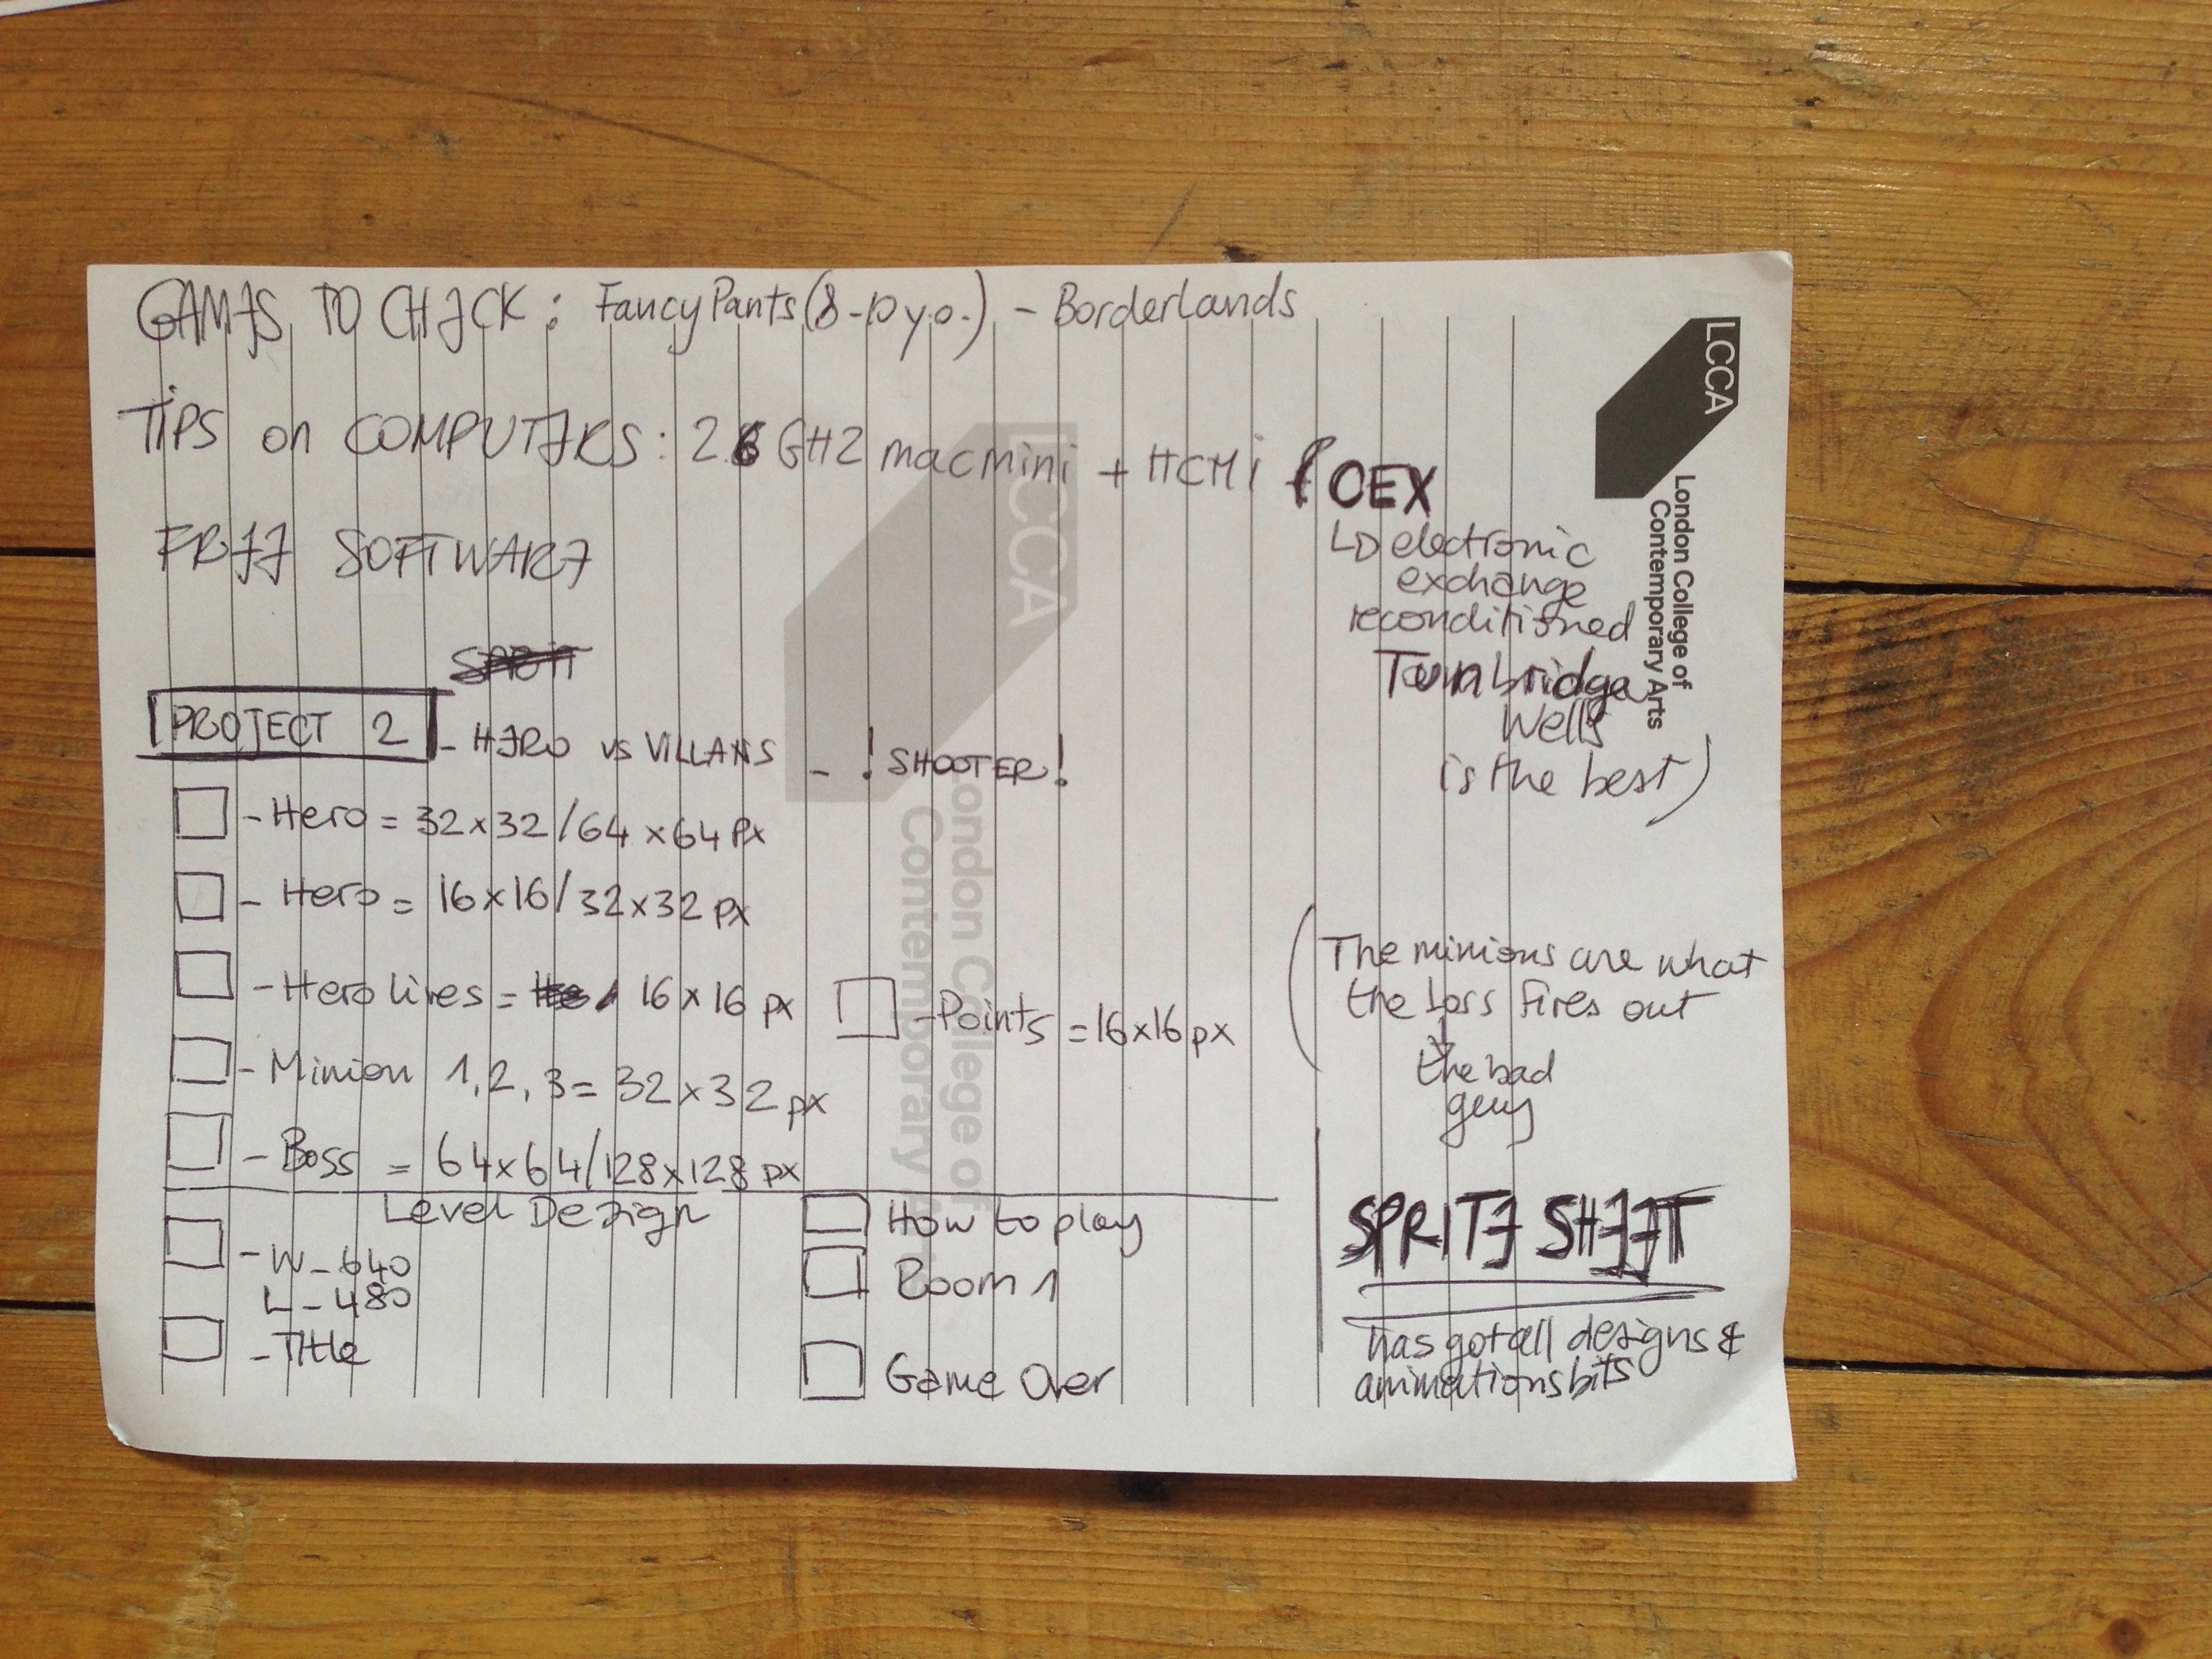 GAMES TO CHECK: FancyPants (8-10 y.o.) - Borderlands
TIPS on COMPUTERS: 2.6 GHZ macmini + HCMi (CEX
↳ electronic
exchange
reconditioned
Tunbridge
Wells
is the best)
FREE SOFTWARE
PROJECT 2 - HERO vs VILLANS - ! SHOOTER!
- Hero = 32x32/64x64 px
- Hero = 16x16/32x32 px
- Hero lives = 16x16 px
- Points = 16x16 px
- Minion 1, 2, 3 = 32x32 px
- Boss = 64x64/128x128 px
(The minions are what
the boss fires out
↓
the bad
guy
Level Design
- W - 640
L - 480
- Title
How to play
Room 1
Game Over
SPRITE SHEET
has got all designs &
animations bits
LCCA
London College of
Contemporary Arts
LCCA
London College of
Contemporary